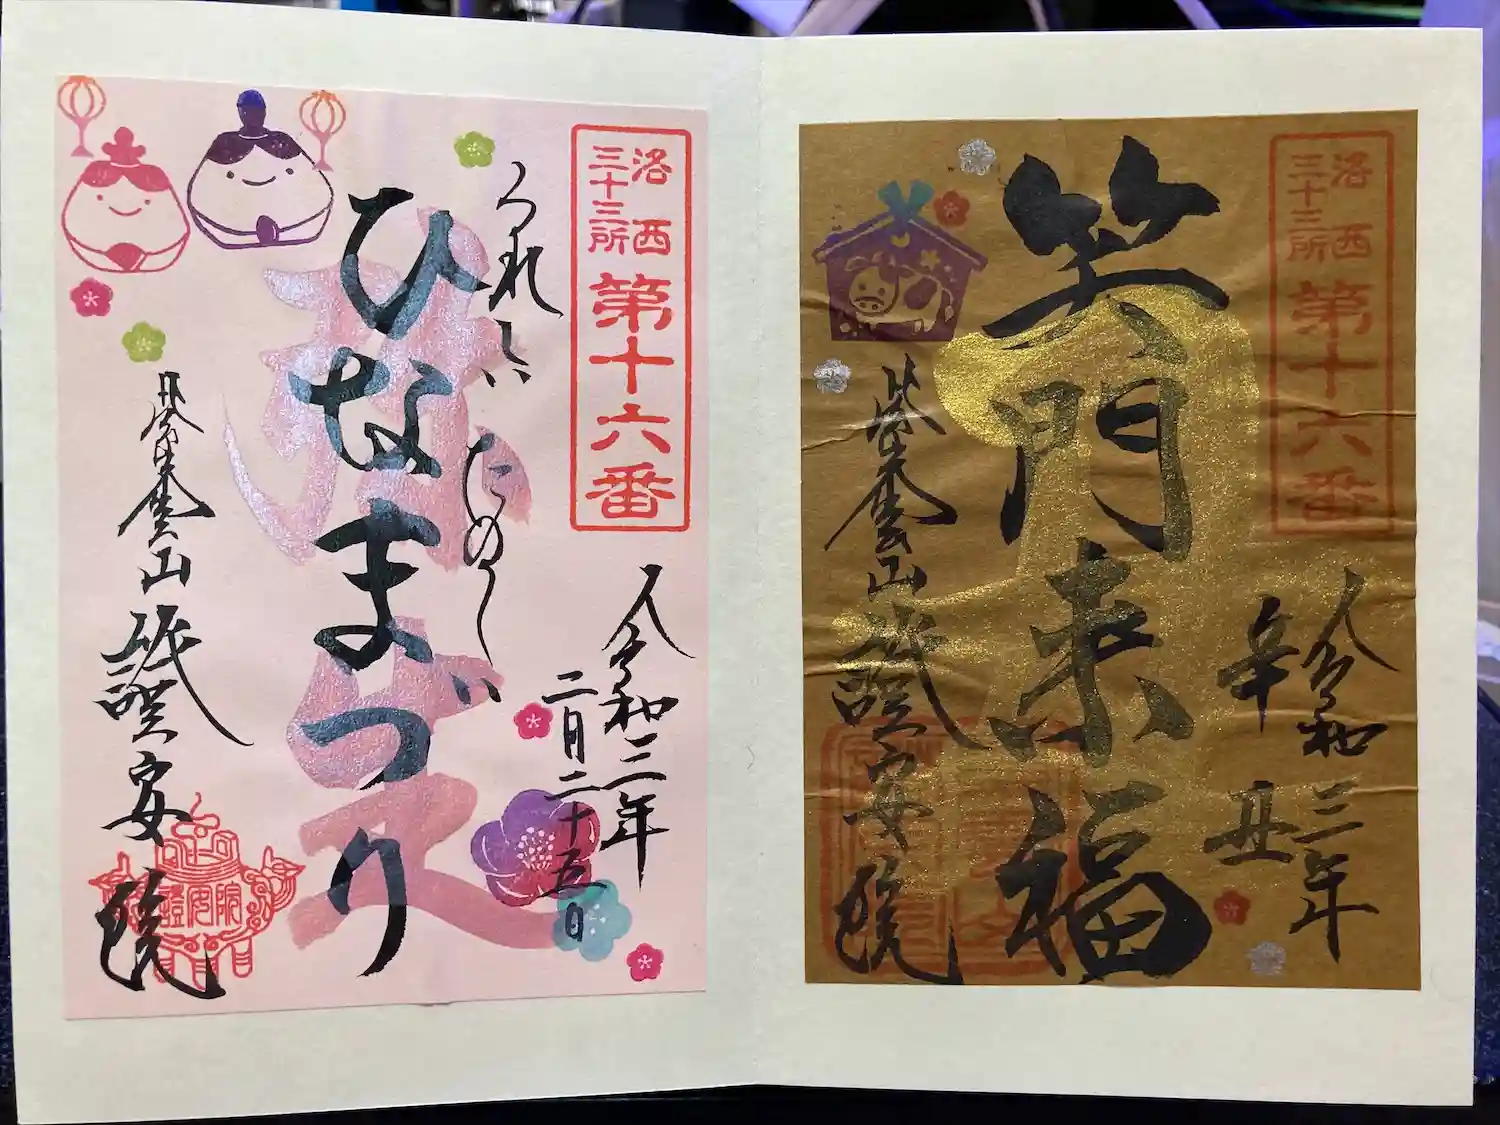 洛西
三十三所
第十六番
令和三年
辛丑
笑門来福
紫雲山
證安院
洛西
三十三所
第十六番
令和三年
二月二十五日
うれしい たのしい
ひなまつり
紫雲山
證安院
證安院